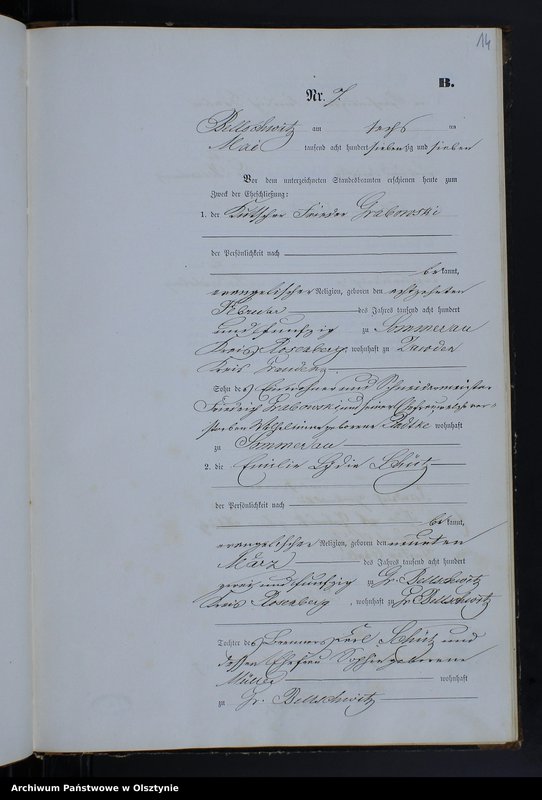 14
B.
Nr. 7.
Bellschwitz am sechs ten
Mai tausend acht hundert siebenzig und sieben
Vor dem unterzeichneten Standesbeamten erschienen heute zum
Zweck der Eheschließung:
1. der Kutscher Grabowski
der Persönlichkeit nach
bekannt,
evangelischer Religion, geboren den achtzehnten
Februar des Jahres tausend acht hundert
und funfzig zu Sommerau
Kreis Rosenberg, wohnhaft zu
Kreis Graudenz
Sohn des Einwohner und Schneidermeister
Friedrich Grabowski und seiner Ehefrau ver-
storben Wilhelmine geborene Radtke wohnhaft
zu Sommerau
2. die Emilie Lydia Schütz
der Persönlichkeit nach
bekannt,
evangelischer Religion, geboren den neunten
März des Jahres tausend acht hundert
zwei und funfzig zu Gr. Bellschwitz
Kreis Rosenberg, wohnhaft zu Gr. Bellschwitz
Tochter des Brenners Karl Schütz und
dessen Ehefrau Sophie geborene
Müller wohnhaft
zu Gr. Bellschwitz
Archiwum Państwowe w Olsztynie